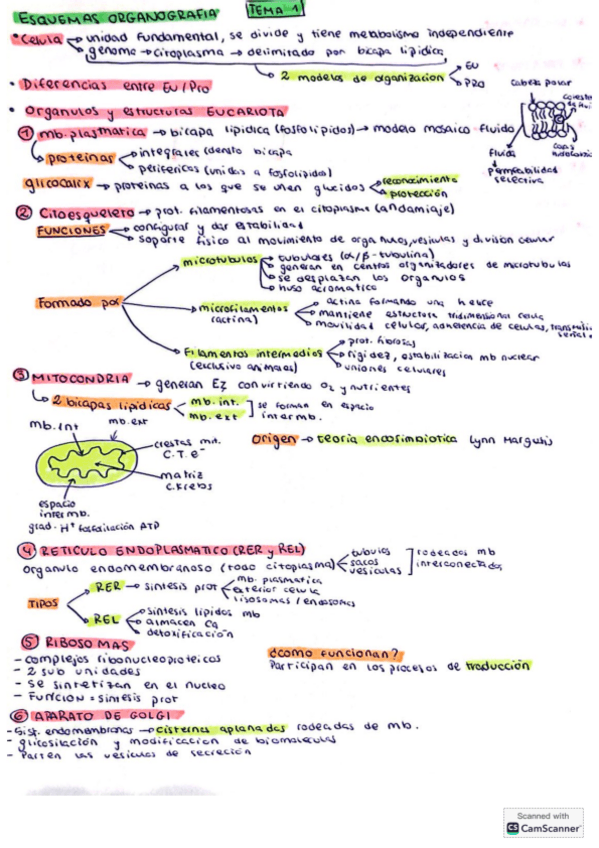 ESQUEMAS ORGANOGRAFIA TEMA 1
• Celula → unidad fundamental, se divide y tiene metabolismo independiente
→ genoma → citoplasma → delimitado por bicapa lipidica
→ 2 modelos de organizacion → EU
→ PRO
• Diferencias entre EU/Pro
• Organulos y estructuras EUCARIOTA
Cabeza polar
① mb. plasmatica → bicapa lipidica (fosfolipidos) → modelo mosaico fluido
proteinas → integrales (dentro bicapa
→ perifericas (unidas a fosfolipidos)
Fluida
permeabilidad selectiva
glicocalix → proteinas a las que se unen glucidos → reconocimiento
→ protección
② Citoesqueleto → prot. filamentosas en el citoplasma (andamiaje)
FUNCIONES → configurar y dar estabilidad
→ soporte fisico al movimiento de organulos, vesiculas y division celular
Formado por
microtubulos → tubulares (α/β-tubulina)
→ generan en centros organizadores de microtubulos
→ se desplazan los organulos
→ huso acromatico
→ microfilamentos (actina)
→ actina formando una helice
→ mantiene estructura tridimensional celula
→ movilidad celular, adherencia de celulas,
Filamentos intermedios (exclusivo animales)
→ prot. fibrosas
→ rigidez, estabilizacion mb nuclear
→ uniones celulares
③ MITOCONDRIA → generan Eª convirtiendo O₂ y nutrientes
→ 2 bicapas lipidicas → mb. int.
mb. ext
se forman en espacio intermb.
mb. int
mb. ext
crestas mit.
C.T.e⁻
matriz
C. Krebs
espacio intermb.
grad. H⁺ fosforilación ATP
Origen → teoria endosimbiotica Lynn Margulis
④ RETICULO ENDOPLASMATICO (RER y REL)
Organulo endomembranoso (todo citoplasma) → tubulos
sacos
vesiculas
rodeados mb
interconectados
TIPOS
RER → sintesis prot → mb. plasmatica
→ exterior celula
→ lisosomas / endosomas
REL → sintesis lipidos mb
→ almacen Ca
→ detoxificación
⑤ RIBOSOMAS
- complejos ribonucleoproteicos
- 2 sub unidades
- Se sintetizan en el nucleo
- FUNCION = sintesis prot
¿como funcionan?
Participan en los procesos de traducción
⑥ APARATO DE GOLGI
- Sist. endomembranas → cisternas aplanadas rodeadas de mb.
- glicosilación y modificacion de biomoleculas
- Parten las vesiculas de secreción
Scanned with
CS CamScanner